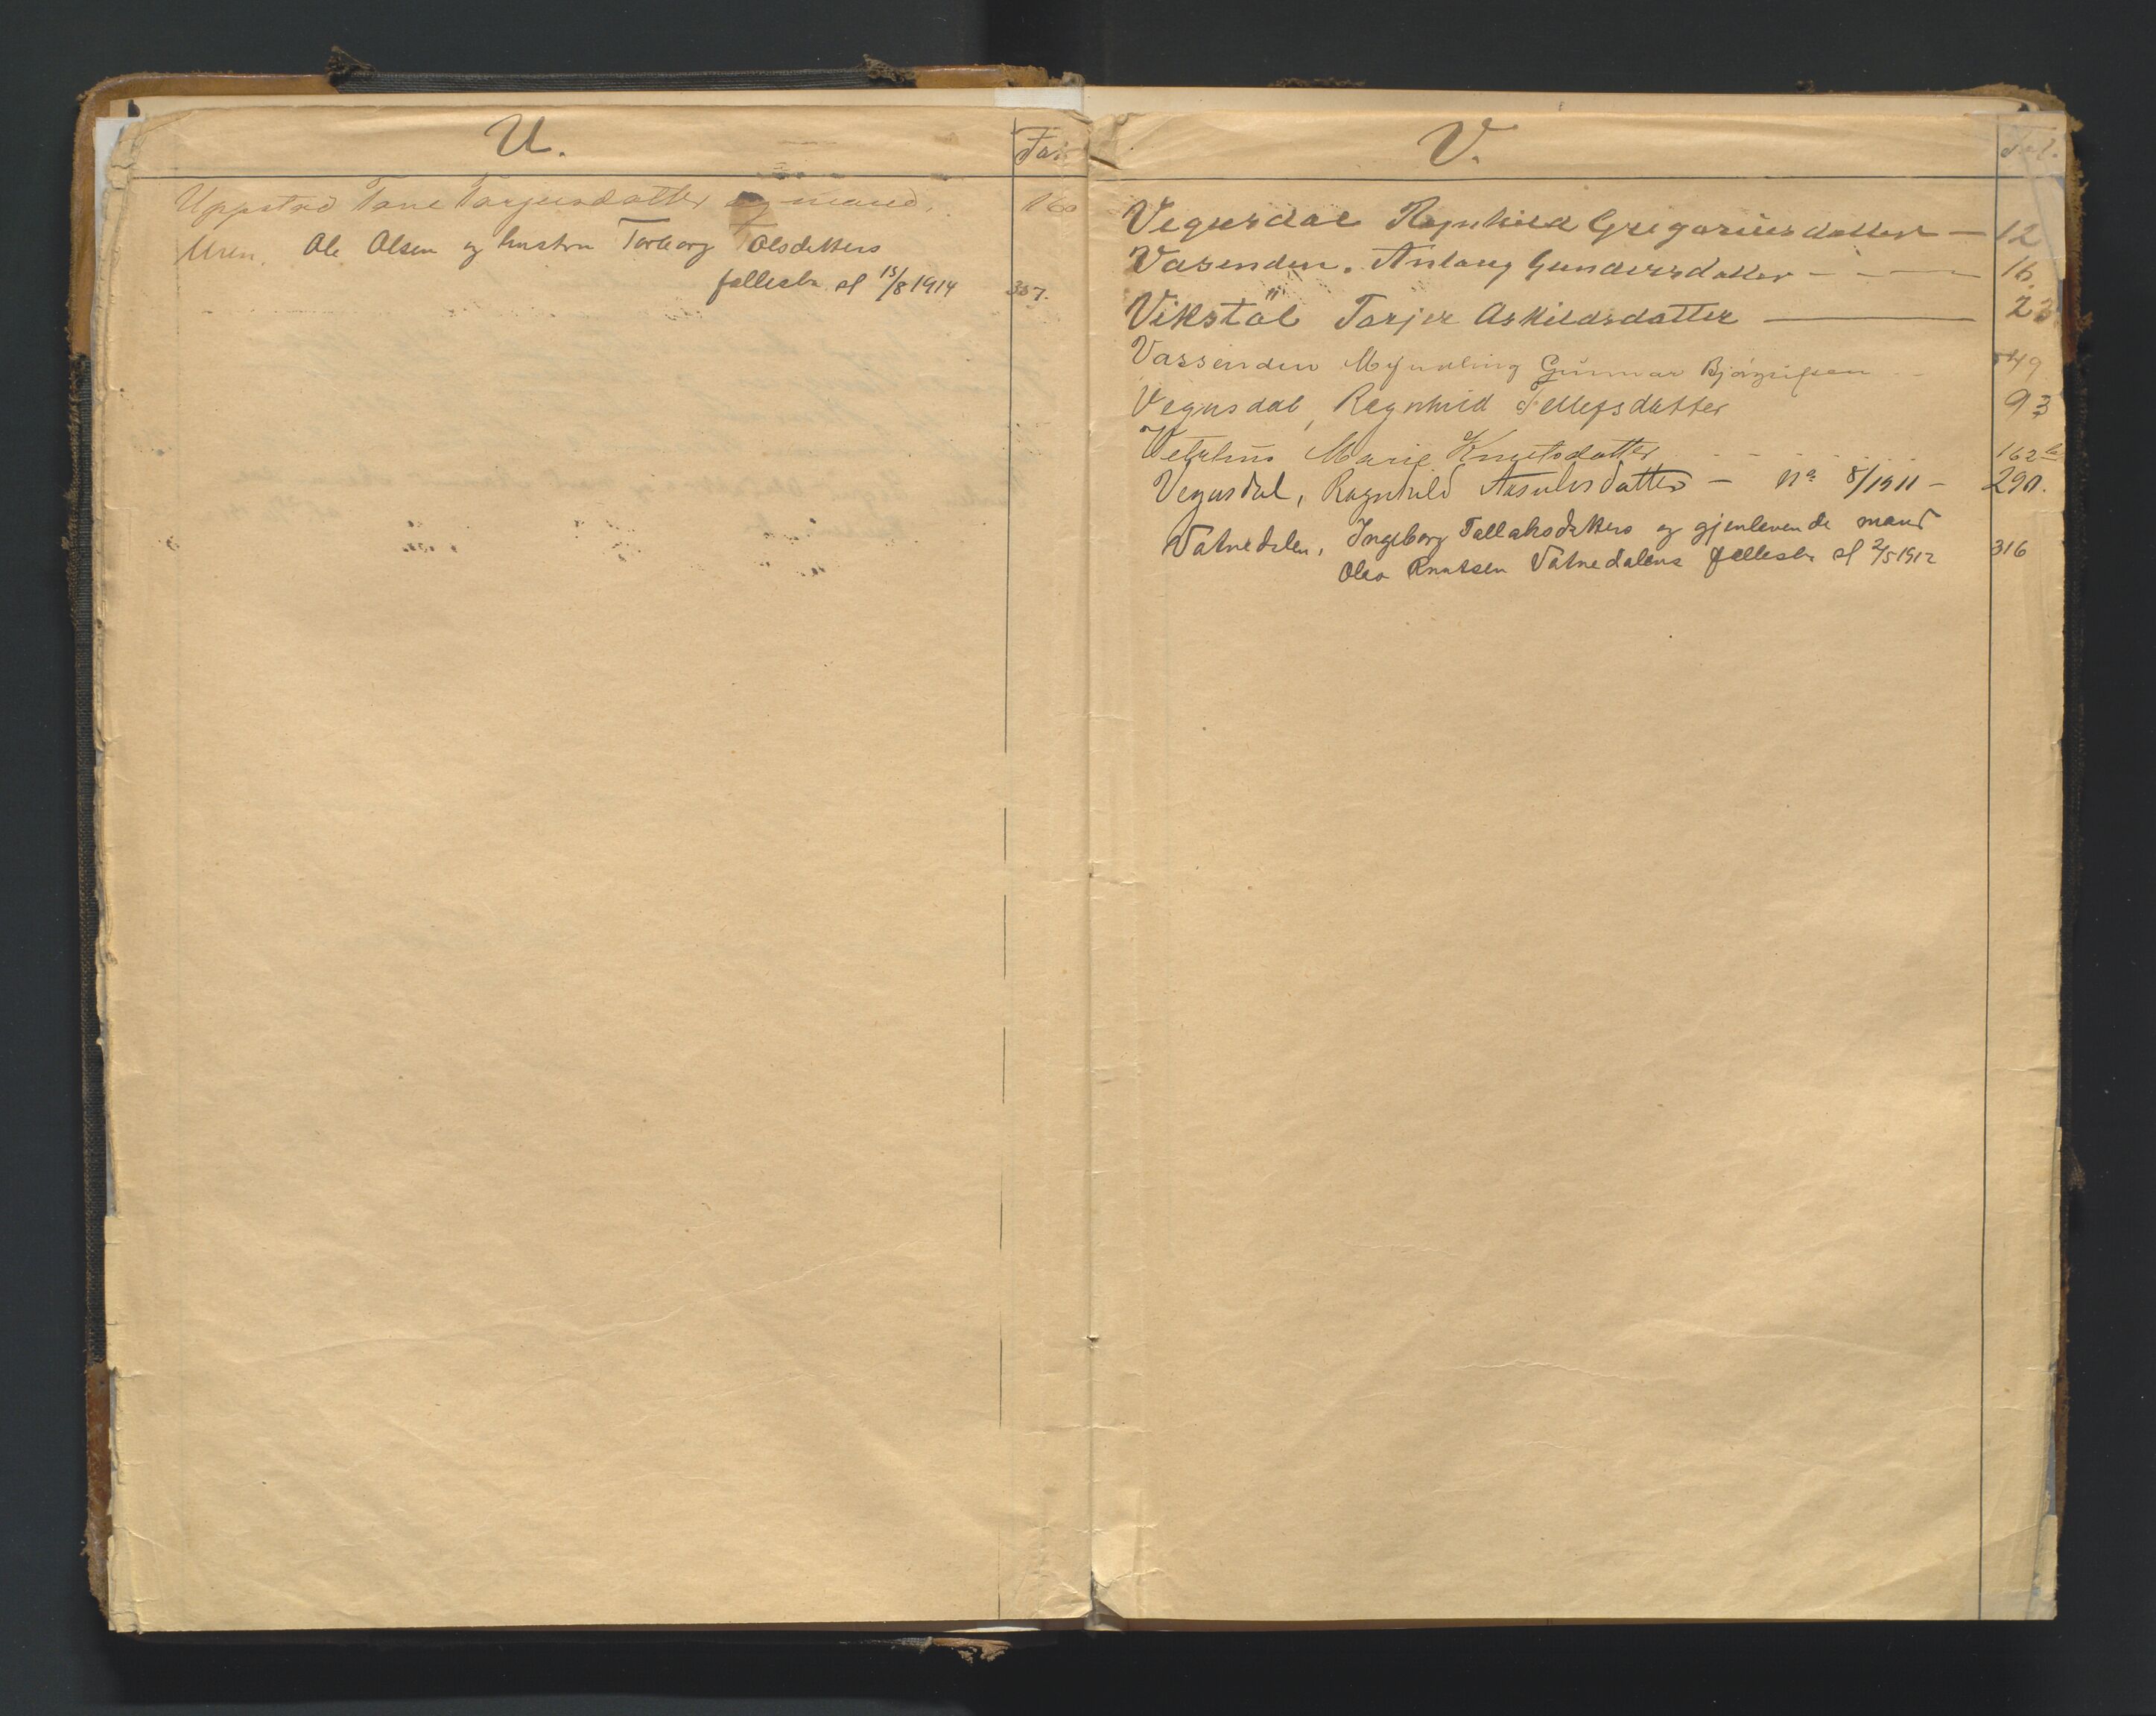 U.
Fol.
Uppstad Tone Tarjeisdatter og mand. 160
Uren, Ole Olsen og hustru Torborg Olsdatters
fællesbo sl 15/8 1914 357.
V.
Fol.
Vegusdal Ragnhild Gregoriusdatter — 12
Vasenden. Anlaug Gundersdatter - - — 16
Vikstöl Tarjer Askildsdatter — 23
Vassenden Myndling Gunnar 49
Vegusdal, Ragnhild Tellefsdatter 93
Marie Knutsdatter - - - - 162b
Vegusdal, Ragnhild Aasulvsdatter — No 8/1911 — 290.
Vatnedalen, Ingeborg Tallaksdatters og gjenlevende mand
Olav Knutsen Vatnedalens fællesbo sl 2/5 1912 316